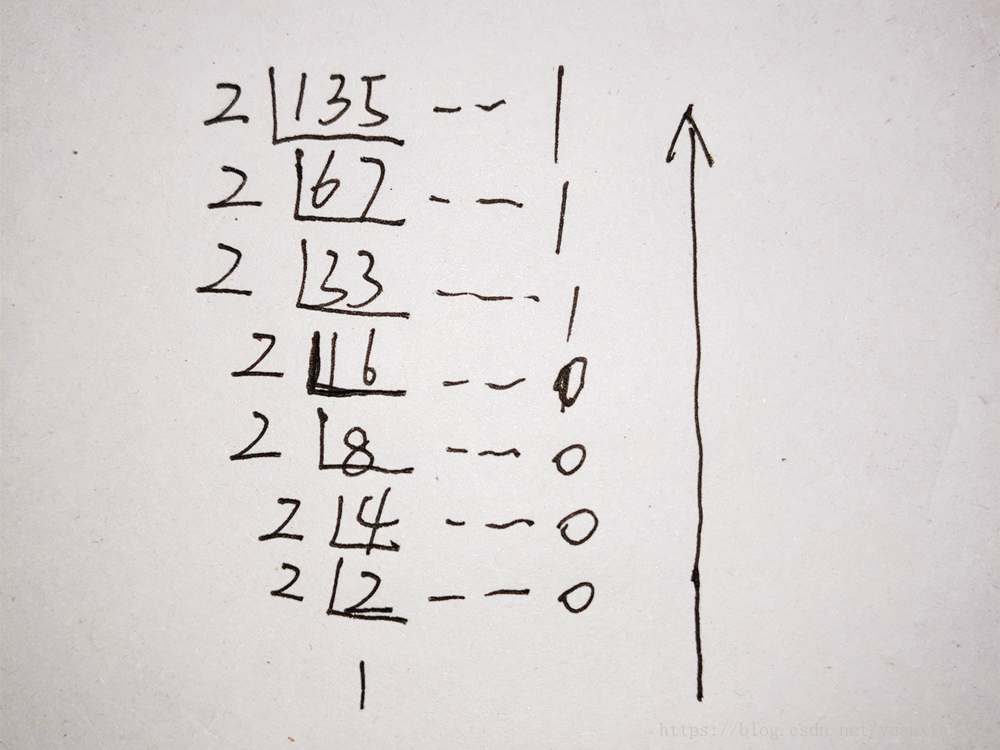 2 135 -- 1
2 67 -- 1
2 33 -- 1
2 16 -- 0
2 8 -- 0
2 4 -- 0
2 2 -- 0
1
https://blog.csdn.net/